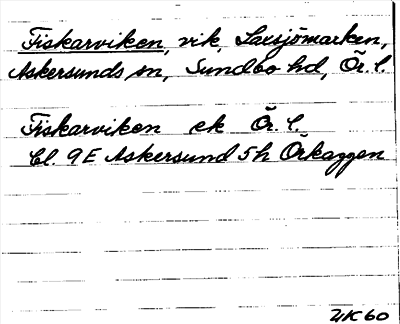 Fiskarviken, vik, Laxsjömarken,
Askersunds sn, Sundbo hd, Ör. l.
Fiskarviken ek Ör. l.
Bl. 9E Askersund 5h Örkaggen
UK60